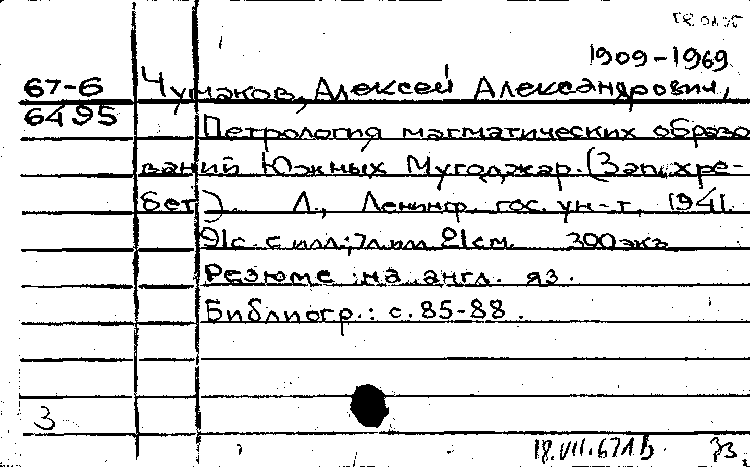 1909-1969
67-6 Чумаков, Алексей Александрович,
6495 Петрология магматических образо
ваний Южных Мугоджар. (Зап. хре-
бет). Л., Ленингр. гос. ун-т, 1941.
91с. с илл.; 7л.илл. 21см. 300экз.
Резюме на англ. яз.
Библиогр.: с. 85-88.
3
18.VII.67